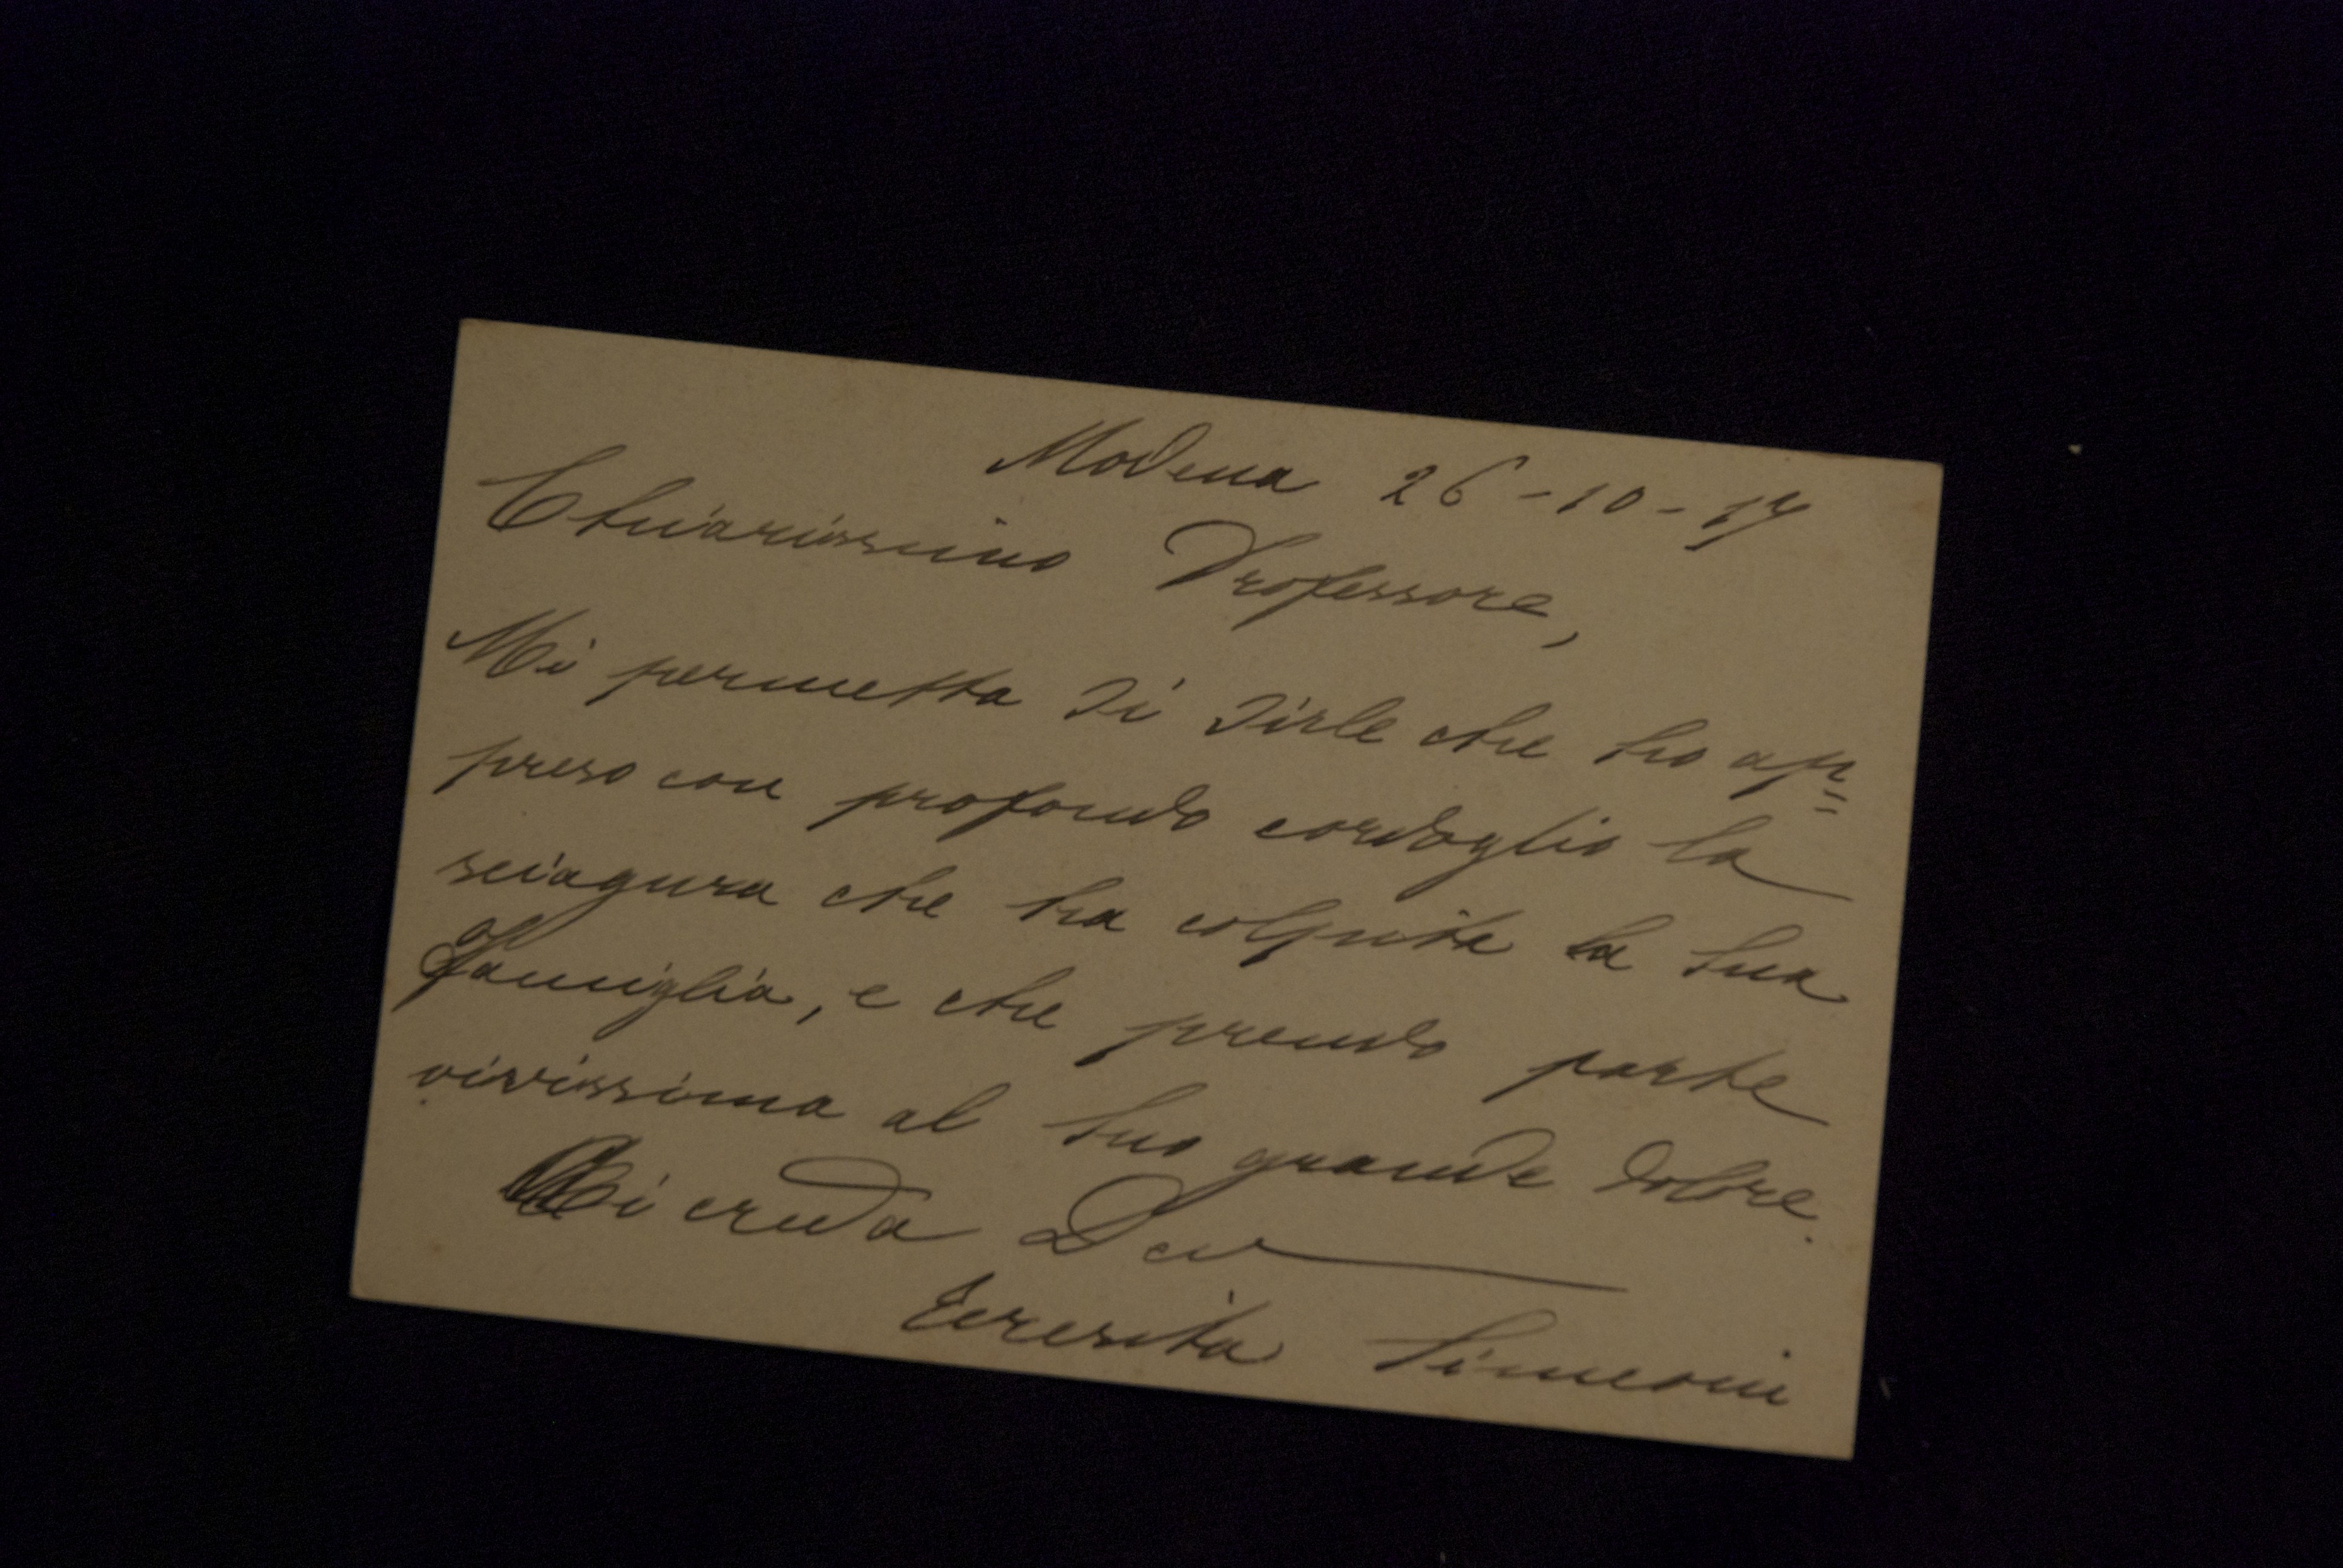 Modena 26-10-17
Chiarissimo Professore,
Mi permetta di dirle che ho ap=
preso con profondo cordoglio la
sciagura che ha colpita la sua
famiglia, e che prendo parte
vivissima al suo grande dolore.
Mi creda Dev
Teresita Simeoni